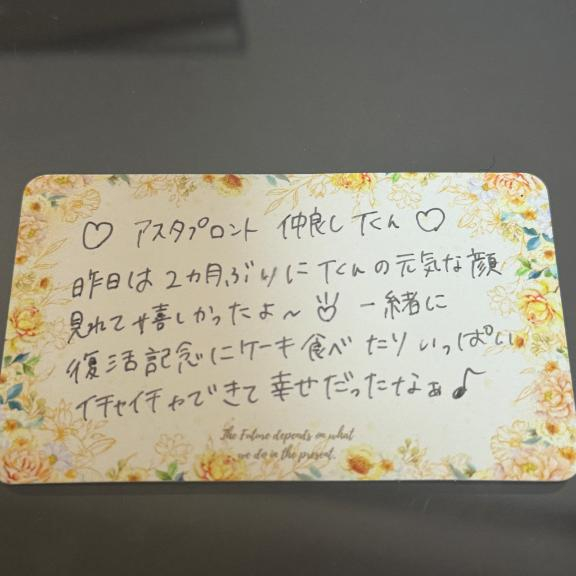 ♡ アスタプロント 仲良しTくん ♡
昨日は2カ月ぶりにTくんの元気な顔
見れて嬉しかったよ〜 一緒に
復活記念にケーキ食べたりいっぱい
イチャイチャできて幸せだったなぁ♪
The Future depends on what
we do in the present.